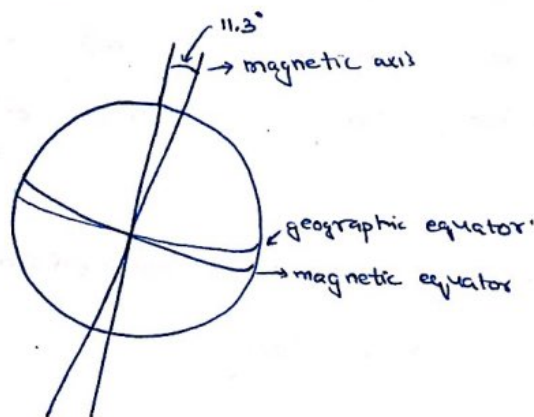 11.3°
→ magnetic axis
geographic equator
→ magnetic equator